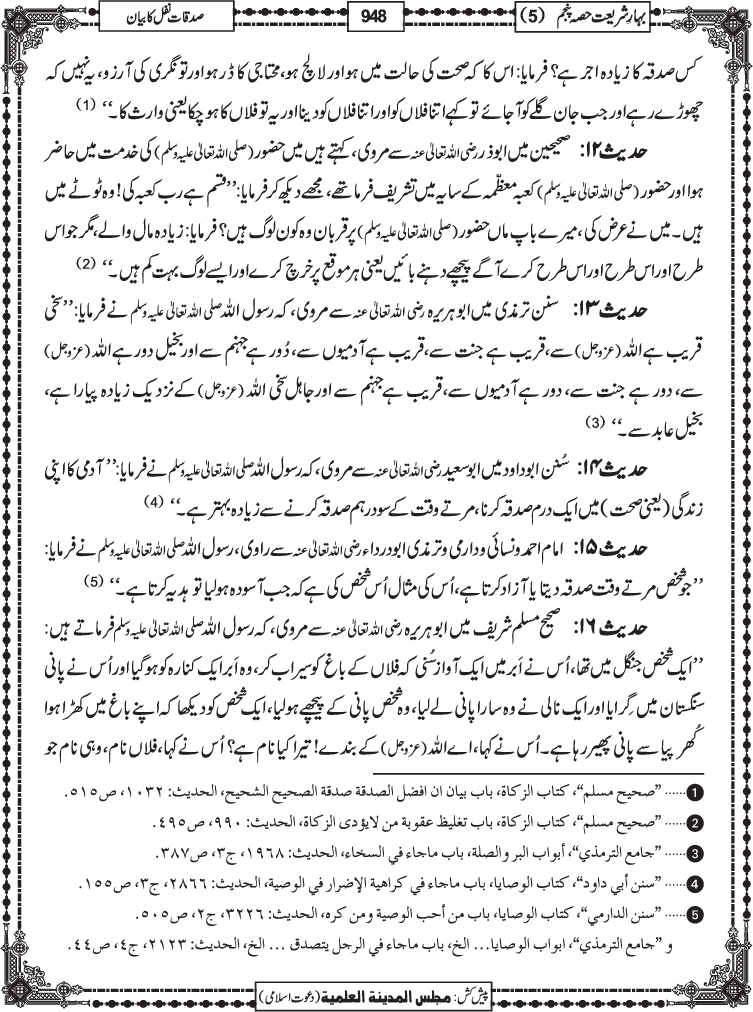 بہارشریعت حصہ پنجم (5)
948
صدقات نفل کا بیان
کس صدقہ کا زیادہ اجر ہے؟ فرمایا: اس کا کہ صحت کی حالت میں ہو اور لالچ ہو، محتاجی کا ڈر ہو اور تونگری کی آرزو، یہ نہیں کہ
چھوڑے رہے اور جب جان گلے کو آجائے تو کہے اتنا فلاں کو اور اتنا فلاں کو دینا اور یہ تو فلاں کا ہو چکا یعنی وارث کا۔‘‘ (1)
حدیث ۱۲: صحیحین میں ابوذر رضی اللہ تعالیٰ عنہ سے مروی، کہتے ہیں میں حضور (صلی اللہ تعالیٰ علیہ وسلم) کی خدمت میں حاضر
ہوا اور حضور (صلی اللہ تعالیٰ علیہ وسلم) کعبہ معظّمہ کے سایہ میں تشریف فرما تھے، مجھے دیکھ کر فرمایا: ’’قسم ہے رب کعبہ کی! وہ ٹوٹے میں
ہیں۔ میں نے عرض کی، میرے باپ ماں حضور (صلی اللہ تعالیٰ علیہ وسلم) پر قربان وہ کون لوگ ہیں؟ فرمایا: زیادہ مال والے، مگر جو اس
طرح اور اس طرح اور اس طرح کرے آگے پیچھے دہنے بائیں یعنی ہر موقع پر خرچ کرے اور ایسے لوگ بہت کم ہیں۔‘‘ (2)
حدیث ۱۳: سنن ترمذی میں ابو ہریرہ رضی اللہ تعالیٰ عنہ سے مروی، کہ رسول اللہ صلی اللہ تعالیٰ علیہ وسلم نے فرمایا: ’’سخی
قریب ہے اللہ (عزوجل) سے، قریب ہے جنت سے، قریب ہے آدمیوں سے، دُور ہے جہنم سے اور بخیل دور ہے اللہ (عزوجل)
سے، دور ہے جنت سے، دور ہے آدمیوں سے، قریب ہے جہنم سے اور جاہل سخی اللہ (عزوجل) کے نزدیک زیادہ پیارا ہے،
بخیل عابد سے۔‘‘ (3)
حدیث ۱۴: سُنن ابو داود میں ابو سعید رضی اللہ تعالیٰ عنہ سے مروی، کہ رسول اللہ صلی اللہ تعالیٰ علیہ وسلم نے فرمایا: ’’آدمی کا اپنی
زندگی (یعنی صحت) میں ایک درم صدقہ کرنا، مرتے وقت کے سو درہم صدقہ کرنے سے زیادہ بہتر ہے۔‘‘ (4)
حدیث ۱۵: امام احمد و نسائی و دارمی و ترمذی ابو درداء رضی اللہ تعالیٰ عنہ سے راوی، رسول اللہ صلی اللہ تعالیٰ علیہ وسلم نے فرمایا:
’’جو شخص مرتے وقت صدقہ دیتا یا آزاد کرتا ہے، اُس کی مثال اُس شخص کی ہے کہ جب آسودہ ہو لیا تو ہدیہ کرتا ہے۔‘‘ (5)
حدیث ۱۶: صحیح مسلم شریف میں ابو ہریرہ رضی اللہ تعالیٰ عنہ سے مروی، کہ رسول اللہ صلی اللہ تعالیٰ علیہ وسلم فرماتے ہیں:
’’ایک شخص جنگل میں تھا، اُس نے اَبر میں ایک آواز سُنی کہ فلاں کے باغ کو سیراب کر، وہ اَبر ایک کنارہ کو ہو گیا اور اُس نے پانی
سنگستان میں گِرایا اور ایک نالی نے وہ سارا پانی لے لیا، وہ شخص پانی کے پیچھے ہو لیا، ایک شخص کو دیکھا کہ اپنے باغ میں کھڑا ہوا
کُھرپیا سے پانی پھیر رہا ہے۔ اُس نے کہا، اے اللہ (عزوجل) کے بندے! تیرا کیا نام ہے؟ اُس نے کہا، فلاں نام، وہی نام جو
1 ...... ’’صحیح مسلم‘‘، کتاب الزکاۃ، باب بیان ان افضل الصدقۃ صدقۃ الصحیح الشحیح، الحدیث: ۱۰۳۲، ص۵۱۵.
2 ...... ’’صحیح مسلم‘‘، کتاب الزکاۃ، باب تغلیظ عقوبۃ من لا یؤدی الزکاۃ، الحدیث: ۹۹۰، ص۴۹۵.
3 ...... ’’جامع الترمذي‘‘، أبواب البر والصلۃ، باب ماجاء في السخاء، الحدیث: ۱۹۶۸، ج۳، ص۳۸۷.
4 ...... ’’سنن أبي داود‘‘، کتاب الوصایا، باب ماجاء في کراھیۃ الإضرار في الوصیۃ، الحدیث: ۲۸۶۶، ج۳، ص۱۵۵.
5 ...... ’’سنن الدارمي‘‘، کتاب الوصایا، باب من أحب الوصیۃ ومن کرہ، الحدیث: ۳۲۲۶، ج۲، ص۵۰۵.
و ’’جامع الترمذي‘‘، ابواب الوصایا... الخ، باب ماجاء في الرجل یتصدق ... الخ، الحدیث: ۲۱۲۳، ج۴، ص۴۴.
پیش کش: مجلس المدینۃ العلمیۃ (دعوت اسلامی)